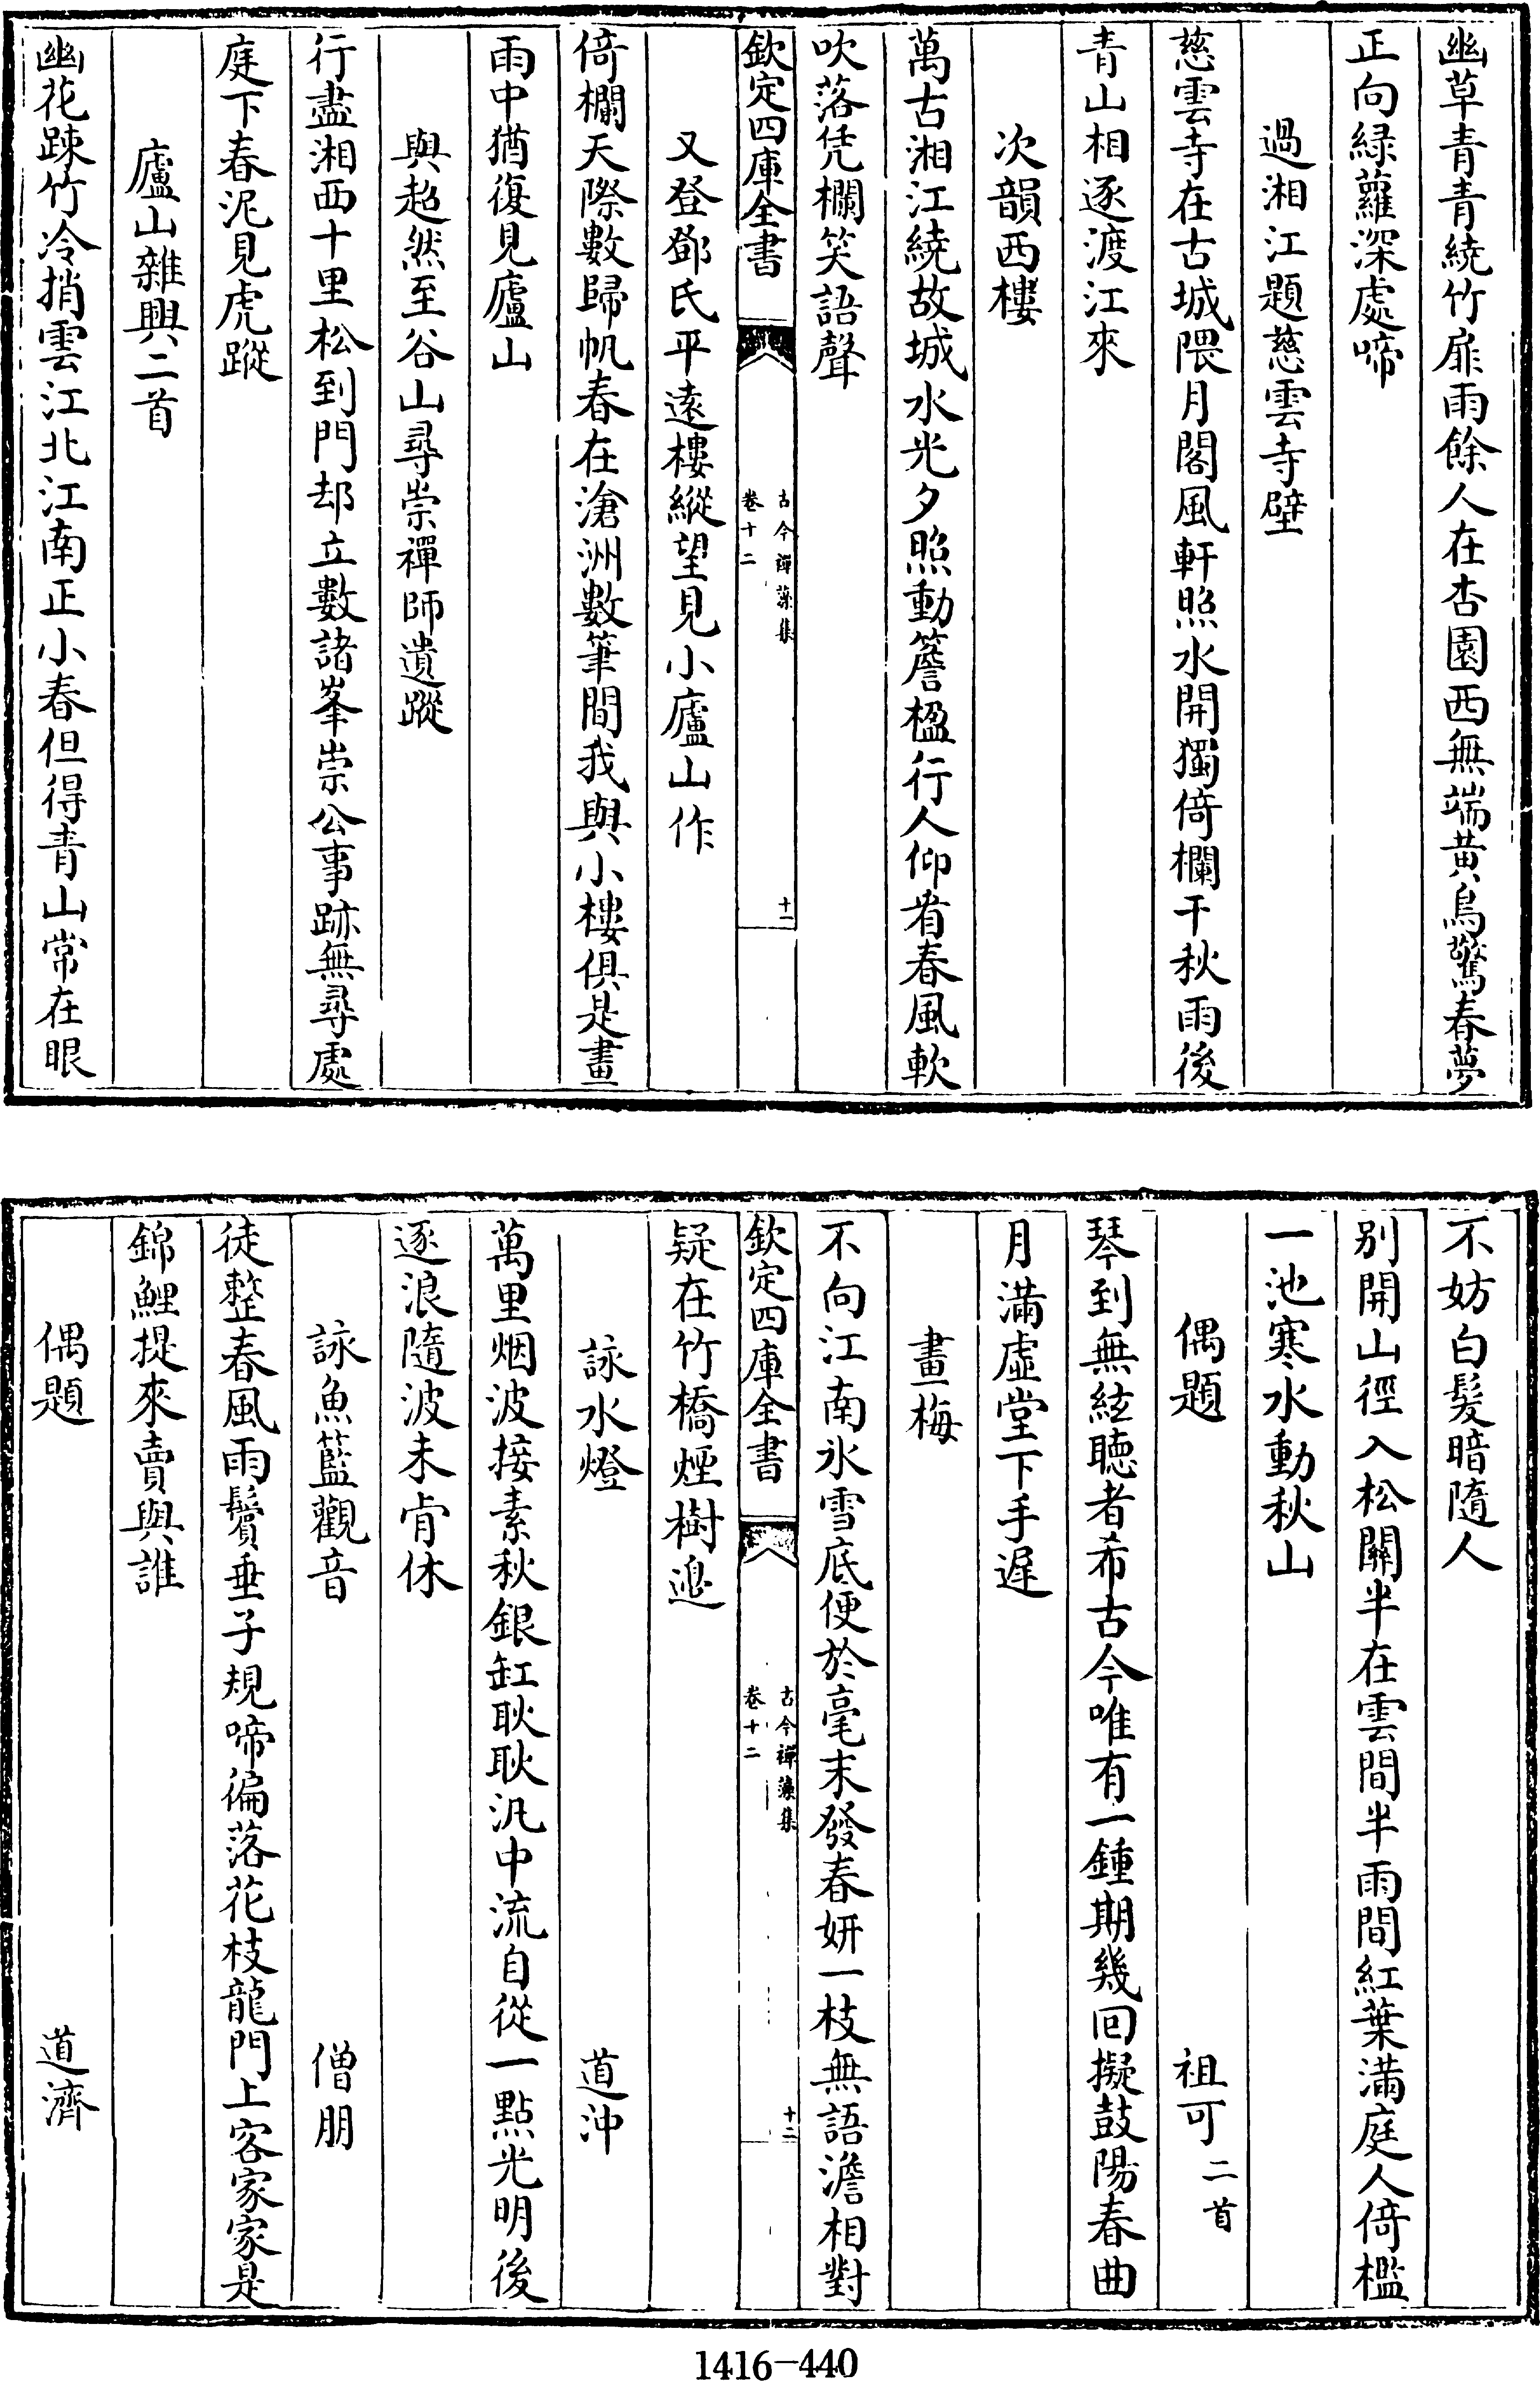 幽草青青繞竹扉雨餘人在杏園西無端黄鳥驚春夢
正向緑蘿深處啼
過湘江題慈雲寺壁
慈雲寺在古城隈月閣風軒照水開獨倚欄干秋雨後
青山相逐渡江來
次韻西樓
萬古湘江繞故城水光夕照動簷楹行人仰看春風軟
吹落凭欄笑語聲
欽定四庫全書
古今禪藻集
卷十二
十一
又登鄧氏平遠樓縱望見小廬山作
倚欄天際數歸帆春在滄洲數筆間我與小樓俱是畫
雨中猶復見廬山
與超然至谷山尋崇禪師遺蹤
行盡湘西十里松到門却立數諸峯崇公事跡無尋處
庭下春泥見虎蹤
廬山雜興二首
幽花踈竹冷捎雲江北江南正小春但得青山常在眼
不妨白髮暗隨人
别開山徑入松關半在雲間半雨間紅葉滿庭人倚檻
一池寒水動秋山
偶題 祖可二首
琴到無絃聴者希古今唯有一鍾期幾回擬鼓陽春曲
月滿虛堂下手遲
畫梅
不向江南氷雪底便於毫末發春妍一枝無語澹相對
欽定四庫全書
古今禪藻集
卷十二
十二
疑在竹橋煙樹邉
詠水燈 道沖
萬里烟波接素秋銀缸耿耿汎中流自從一點光明後
逐浪隨波未肯休
詠魚籃觀音 僧朋
徒整春風雨鬢垂子規啼徧落花枝龍門上客家家是
錦鯉提來賣與誰
偶題 道濟
1416-440